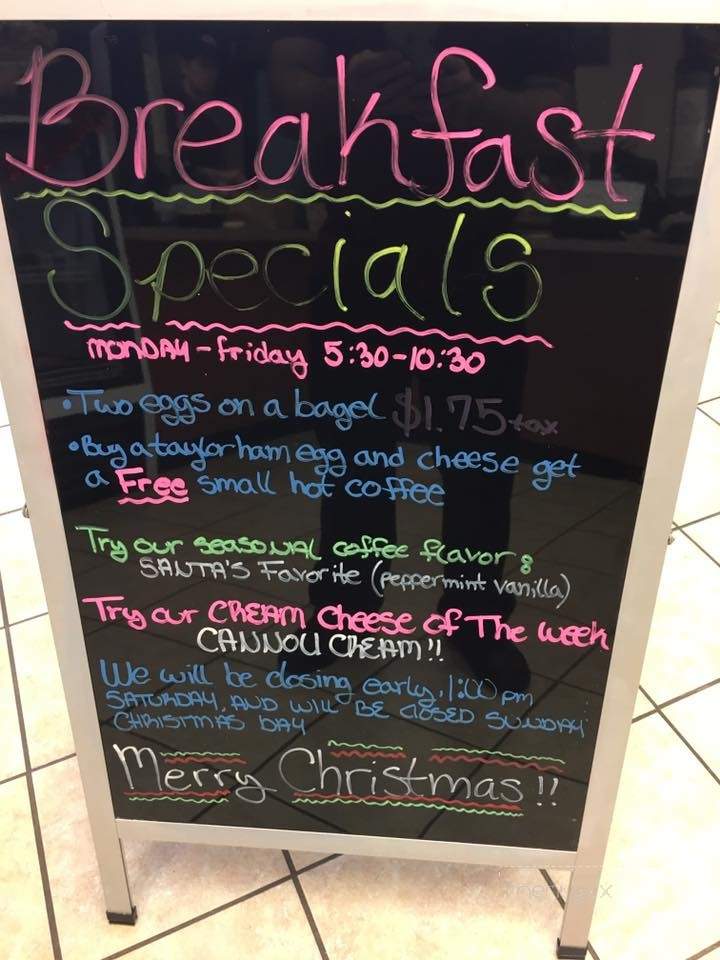 Breakfast
Specials
MONDAY-friday 5:30-10:30
•Two eggs on a bagel $1.75+tax
•Buy a taylor ham, egg and cheese get
a Free small hot coffee
Try our seasonal coffee flavor:
SANTA'S Favorite (peppermint vanilla)
Try our CREAM cheese of The week
CANNOLI CREAM!!
We will be closing early, 1:00 pm
SATURDAY, AND WILL BE CLOSED SUNDAY
CHRISTMAS DAY
Merry Christmas!!